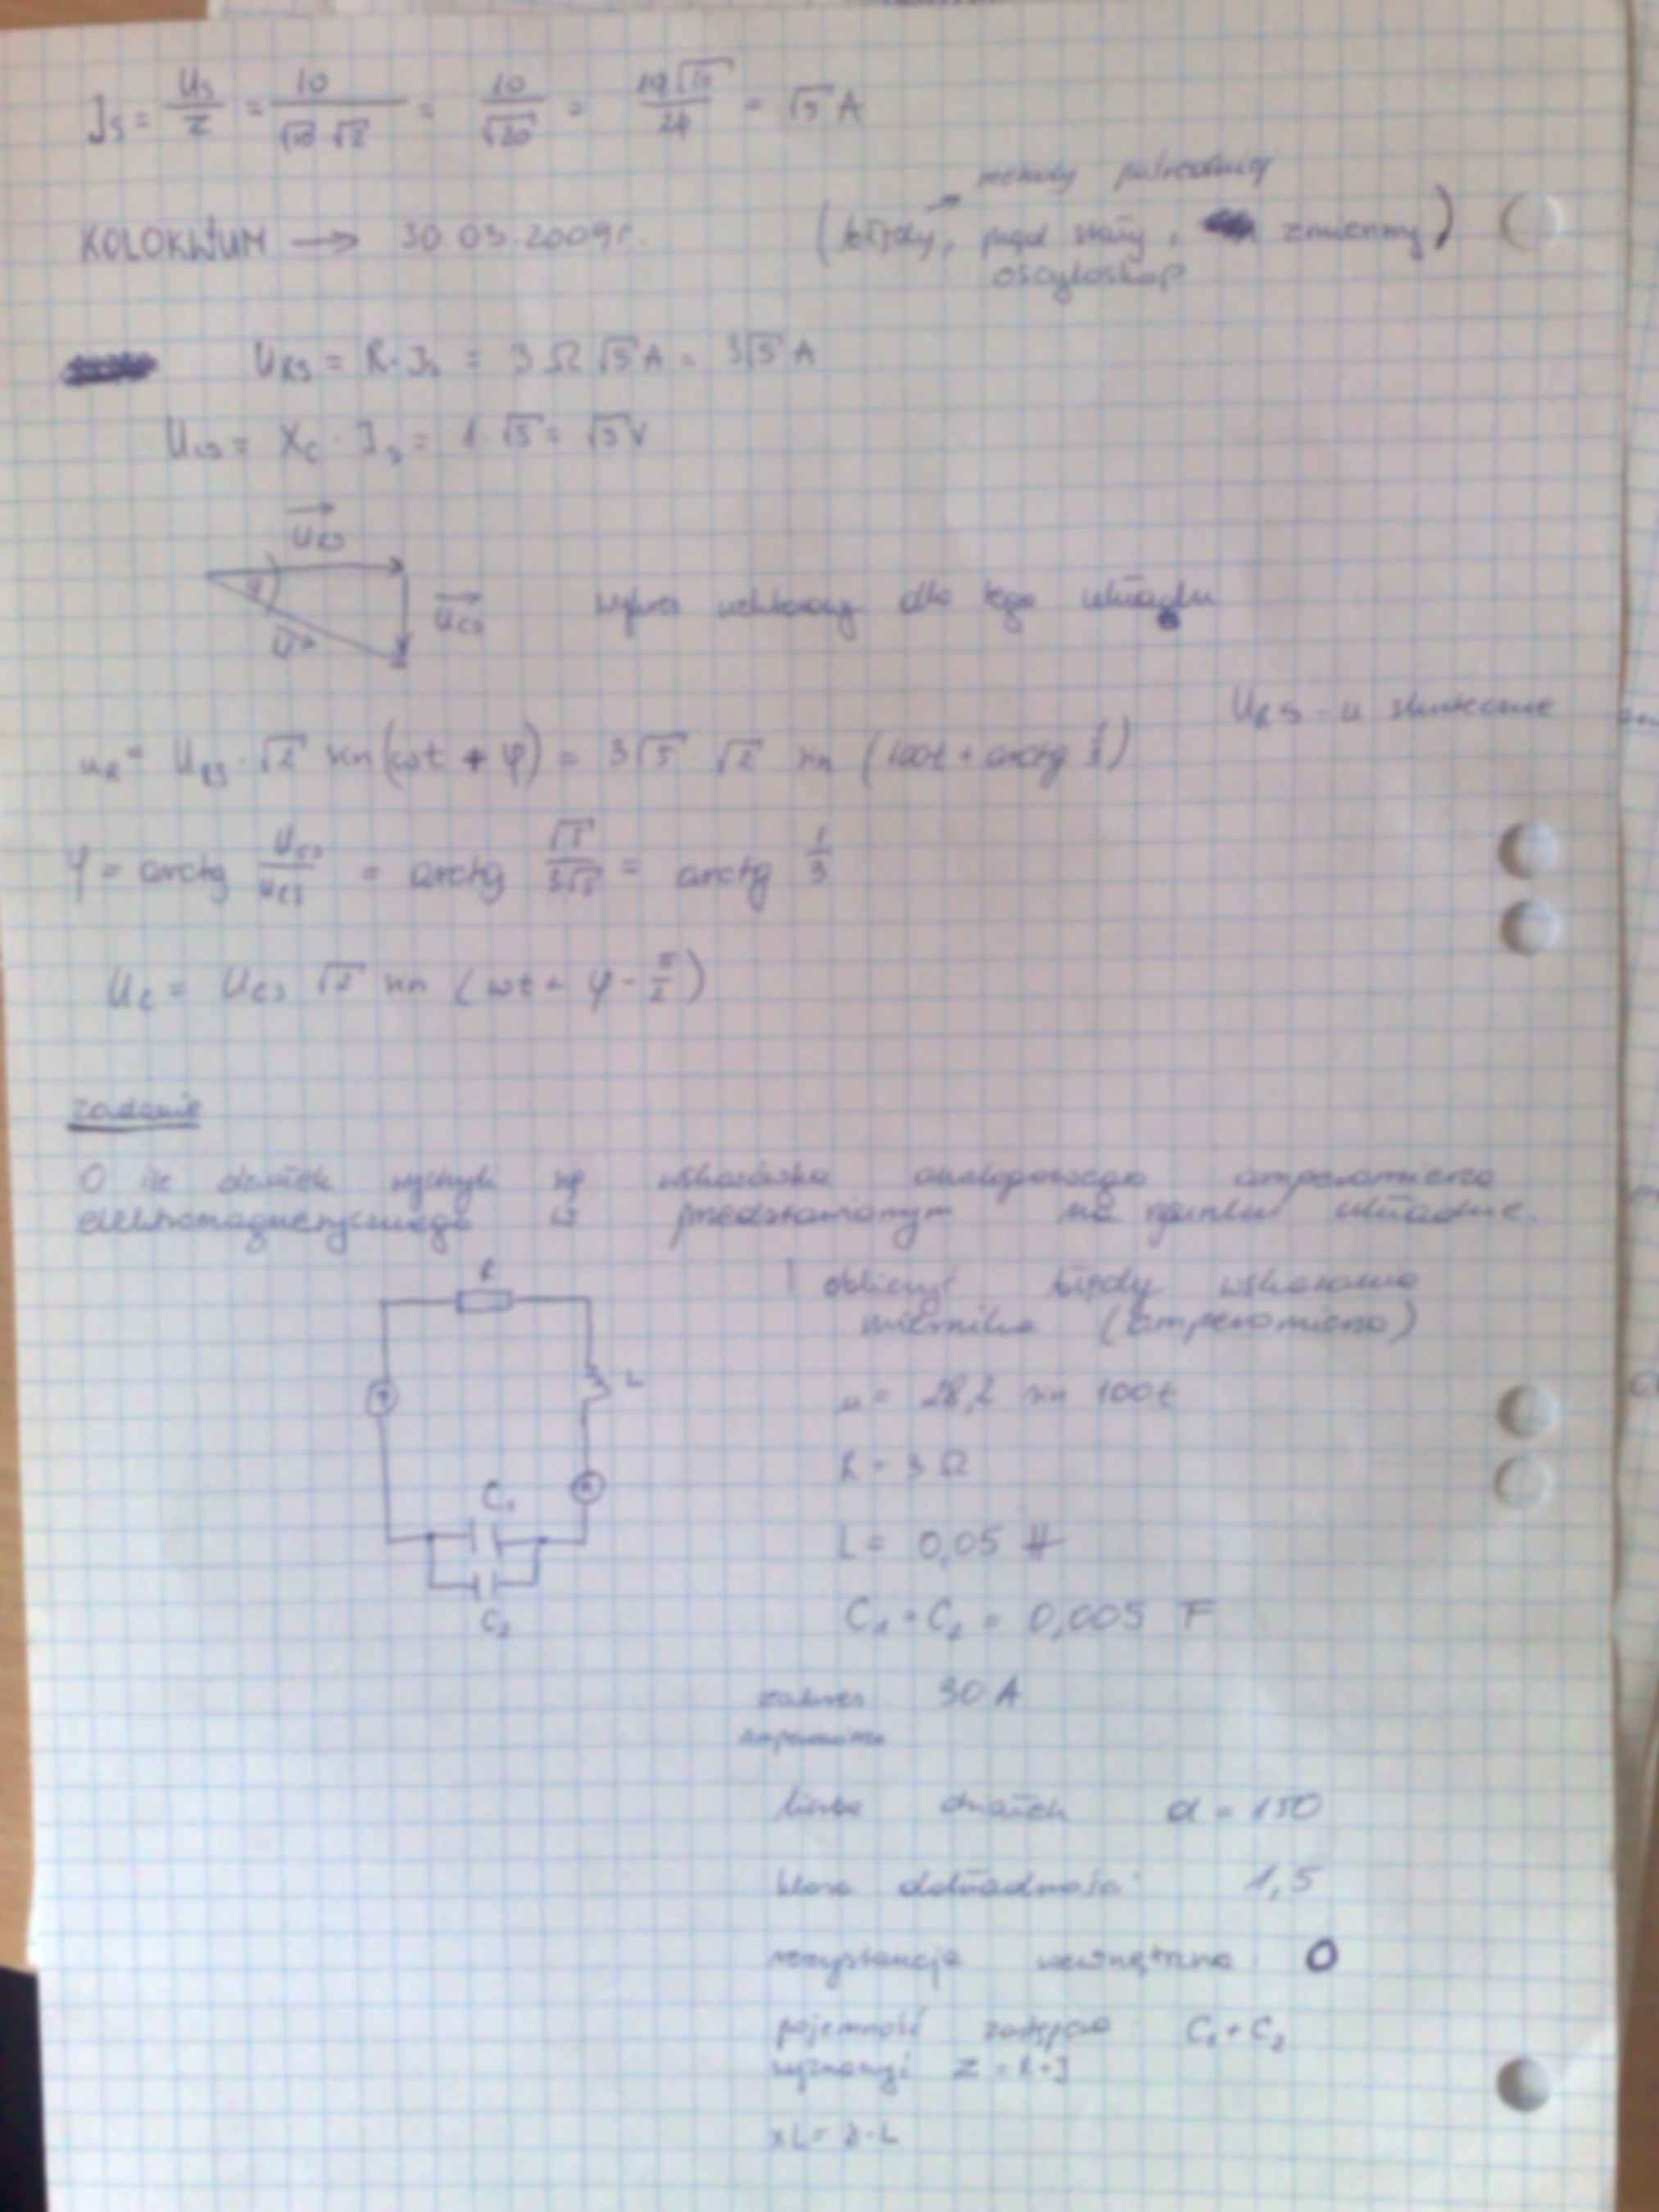 J_S = U_S/Z = 10/(√10·√2) = 10/√20 = 10√20/20 = √5 A
metody pośredniej
KOLOKWIUM → 30.03.2009r. (błędy, prąd stały, zmienny)
oscyloskop
U_RS = R·J_S = 3Ω √5 A = 3√5 A
U_CS = X_C · J_S = 1·√5 = √5 V
U_RS
φ U U_CS wykres wektorowy dla tego układu
U_RS - u skuteczne
u_R = U_RS·√2 sin(ωt + φ) = 3√5 √2 sin (100t + arctg 1/3)
φ = arctg = arctg √5/3√5 = arctg 1/3
U_C = U_CS √2 sin (ωt + φ - π/2)
zadanie
O ile działek wychyli się wskazówka analogowego amperomierza
elektromagnetycznego w przedstawionym na rysunku układzie.
R
obliczyć błędy wskazania
miernika (amperomierza)
L
u = 28,2 sin 100t
R = 3 Ω
C₁
L = 0,05 H
C₂
C₁ = C₂ = 0,005 F
zakres 30 A
amperomierza
liczba działek α = 150
klasa dokładności 1,5
rezystancja wewnętrzna 0
pojemność zastępcza C₁ + C₂
wyznaczyć Z =